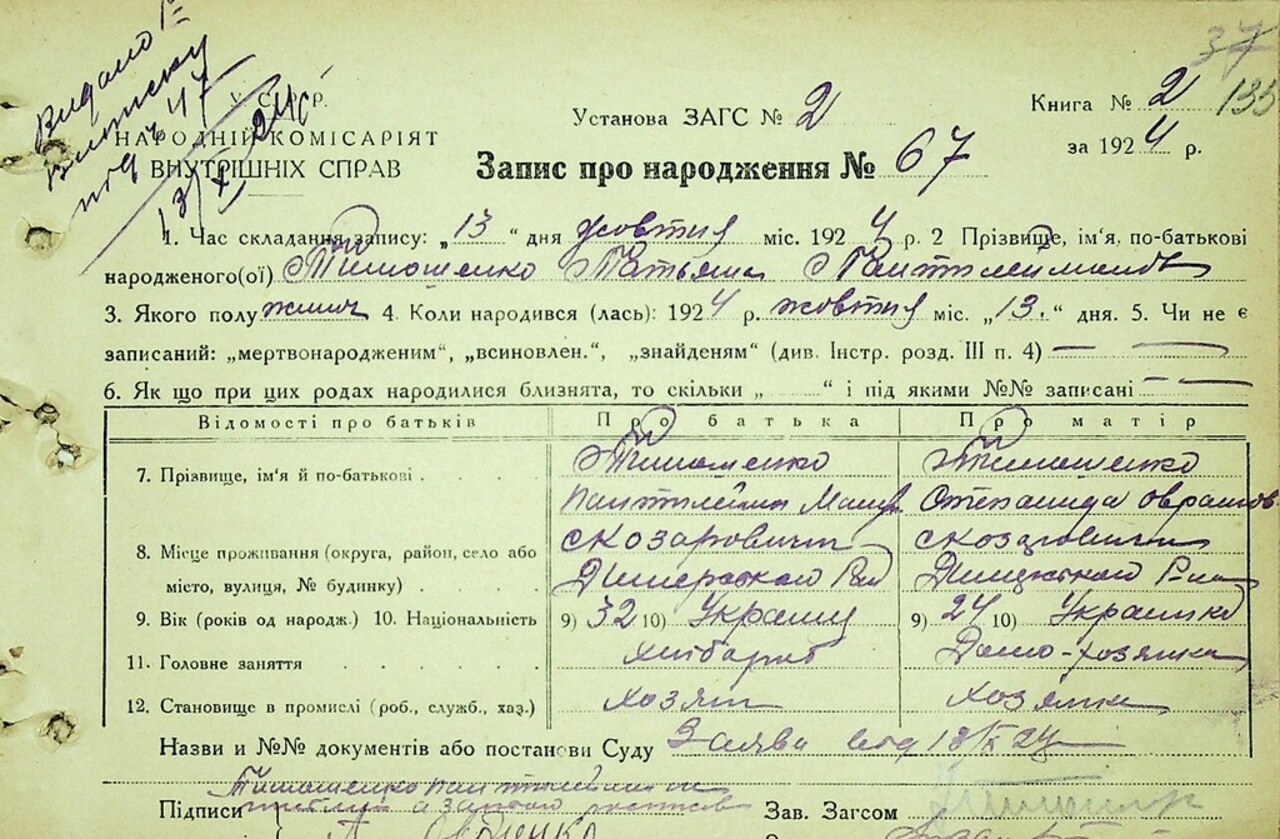 Видано
виписку
під ч 47
13/X 24 р
37
135
У. С. Р. Р.
НАРОДНІЙ КОМІСАРІЯТ
ВНУТРІШНІХ СПРАВ
Установа ЗАГС № 2
Книга № 2
за 1924 р.
Запис про народження № 67
1. Час складання запису: „13“ дня жовтня міс. 1924 р. 2 Прізвище, ім'я, по-батькові
народженого(ої) Тимошенко Татьяна
3. Якого полу жіноч 4. Коли народився (лась): 1924 р. жовтня міс. „13.“ дня. 5. Чи не є
записаний: „мертвонародженим“, „всиновлен.“, „знайденям“ (див. Інстр. розд. III п. 4) —
6. Як що при цих родах народилися близнята, то скільки „ “ і під якими №№ записані —
Відомості про батьків Про батька Про матір
7. Прізвище, ім'я й по-батькові Тимошенко Тимошенко
Степанида
8. Місце проживання (округа, район, село або
місто, вулиця, № будинку)
9. Вік (років од народж.) 10. Національність 9) 32 10) Украінц 9) 24 10) Украінка
11. Головне заняття хлібороб Домо-хозяйка
12. Становище в промислі (роб., служб., хаз.) хозяін хозяйка
Назви и №№ документів або постанови Суду Заява від 13/X 24
Тимошенко
Підписи
Зав. Загсом